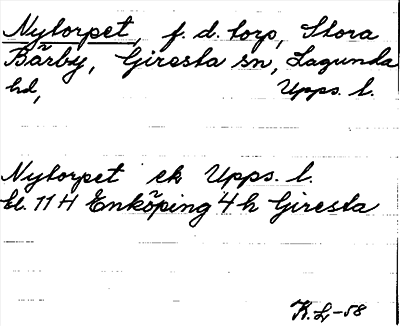 Nytorpet, f. d. torp, Stora
Bärby, Giresta sn, Lagunda
hd, Upps. l.
Nytorpet ek Upps. l.
bl. 11 H Enköping 4 h Giresta
K. L-58